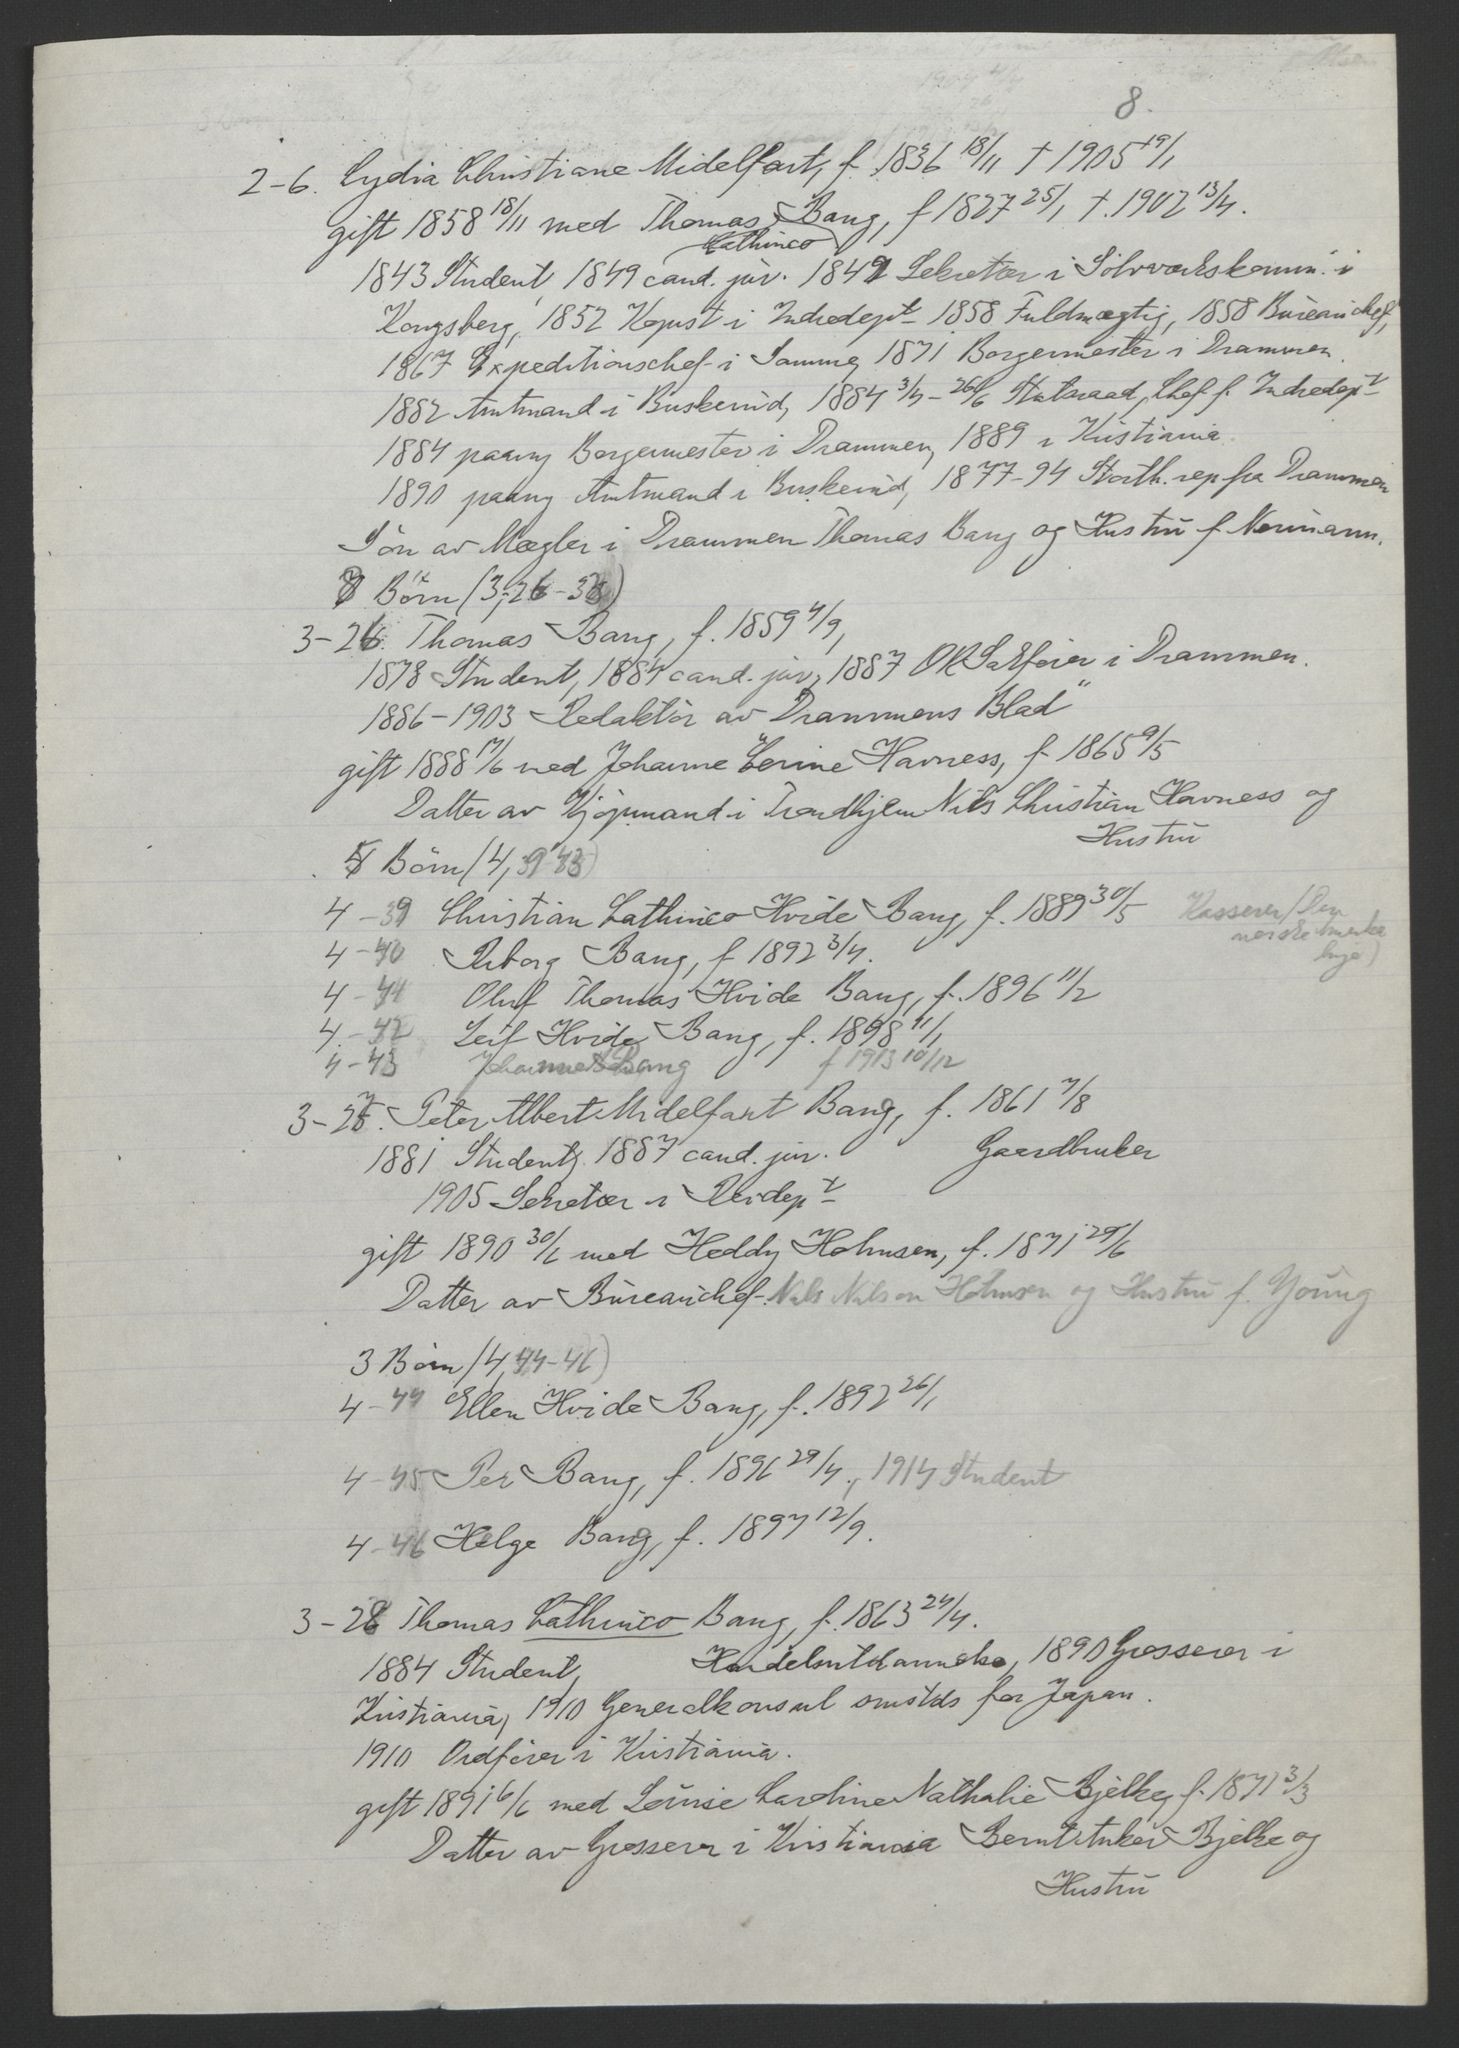 8.
2-6. Lydia Christiane Midelfart, f. 1836 18/11 † 1905 19/1
gift 1858 18/11 med Thomas Cathinco Bang, f 1827 25/1 †. 1902 13/4.
1843 Student, 1849 cand. jur. 1849 Sekretær i Sölvværkskomm. i
Kongsberg, 1852 Kopist i Indredept 1858 Fuldmægtig, 1858 Bureauchef,
1867 Expeditionschef i Samme, 1871 Borgermester i Drammen.
1882 Amtmand i Buskerud, 1884 3/4 - 26/6 Statsraad, Chef f. Indredept
1884 paany Borgermester i Drammen, 1889 i Kristiania
1890 paany Amtmand i Buskerud, 1877-94 Storth. rep fra Drammen
Sön av Mægler i Drammen Thomas Bang og Hustru f. Neumann.
Börn (3,26-
3-26. Thomas Bang, f. 1859 4/9,
1878 Student, 1884 cand. jur, 1887 OR Sakförer i Drammen.
1886-1903 Redaktör av Drammens Blad"
gift 1888 17/6 med Johanne Lorine Havness, f. 1865 9/5
Datter av Kjöpmand i Trondhjem Nils Christian Havness og
Hustru
5 Börn (4,39-43)
4-39 Christian Cathinco Hvide Bang, f. 1889 30/5 Kasserer (Den
norske Amerika
linje)
4-40 Reborg Bang, f 1892 3/4.
4-41 Oluf Thomas Hvide Bang, f. 1896 11/2
4-42 Leif Hvide Bang, f. 1898 11/1
4-43 Johanne Bang f 1913 10/12
3-27. Peter Albert Midelfart Bang, f. 1861 7/8
1881 Student, 1887 cand. jur. Gaardbruker
1905 Sekretær i Revdept
gift 1890 30/6 med Heddy Holmsen, f. 1871 29/6
Datter av Bureauchef Nils Nilsen Holmsen og Hustru f. Young
3 Börn (4,44-46)
4-44 Ellen Hvide Bang, f. 1892 26/1
4-45 Per Bang, f. 1896 29/4., 1914 Student
4-46 Helge Bang, f. 1897 12/9.
3-28 Thomas Cathinco Bang, f. 1863 24/4.
1884 Student, Handelsutdannelse, 1890 Grosserer i
Kristiania, 1910 Generalkonsul smstds for Japan.
1910 Ordförer i Kristiania.
gift 1891 6/6 med Louise Caroline Nathalie Bjelke, f. 1871 3/3
Datter av Grosserer i Kristiania Bernt Anker Bjelke og
Hustru